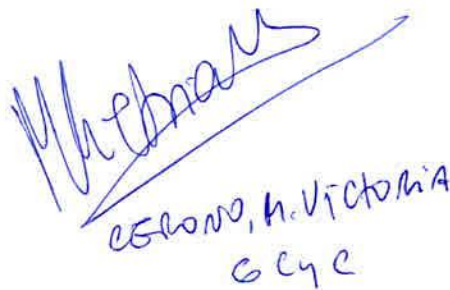 CERONO, M. VICTORIA
GCyC